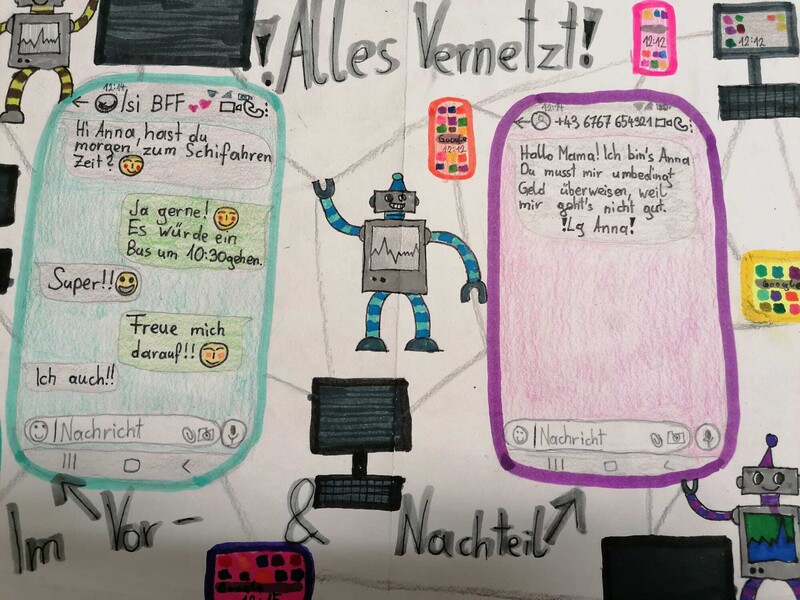 !Alles Vernetzt!
12:12
12:12
12:14
Isi BFF
Hi Anna, hast du
morgen, zum Schifahren
Zeit?
Ja gerne!
Es würde ein
Bus um 10:30 gehen.
Super!!
Freue mich
darauf!!
Ich auch!!
Nachricht
Google
12:12
12:14
+43 6767 654321
Hallo Mama! Ich bin's Anna
Du musst mir umbedingt
Geld überweisen, weil
mir geht's nicht gut.
!Lg Anna!
Nachricht
Google
Im Vor- & Nachteil
Google
12:15